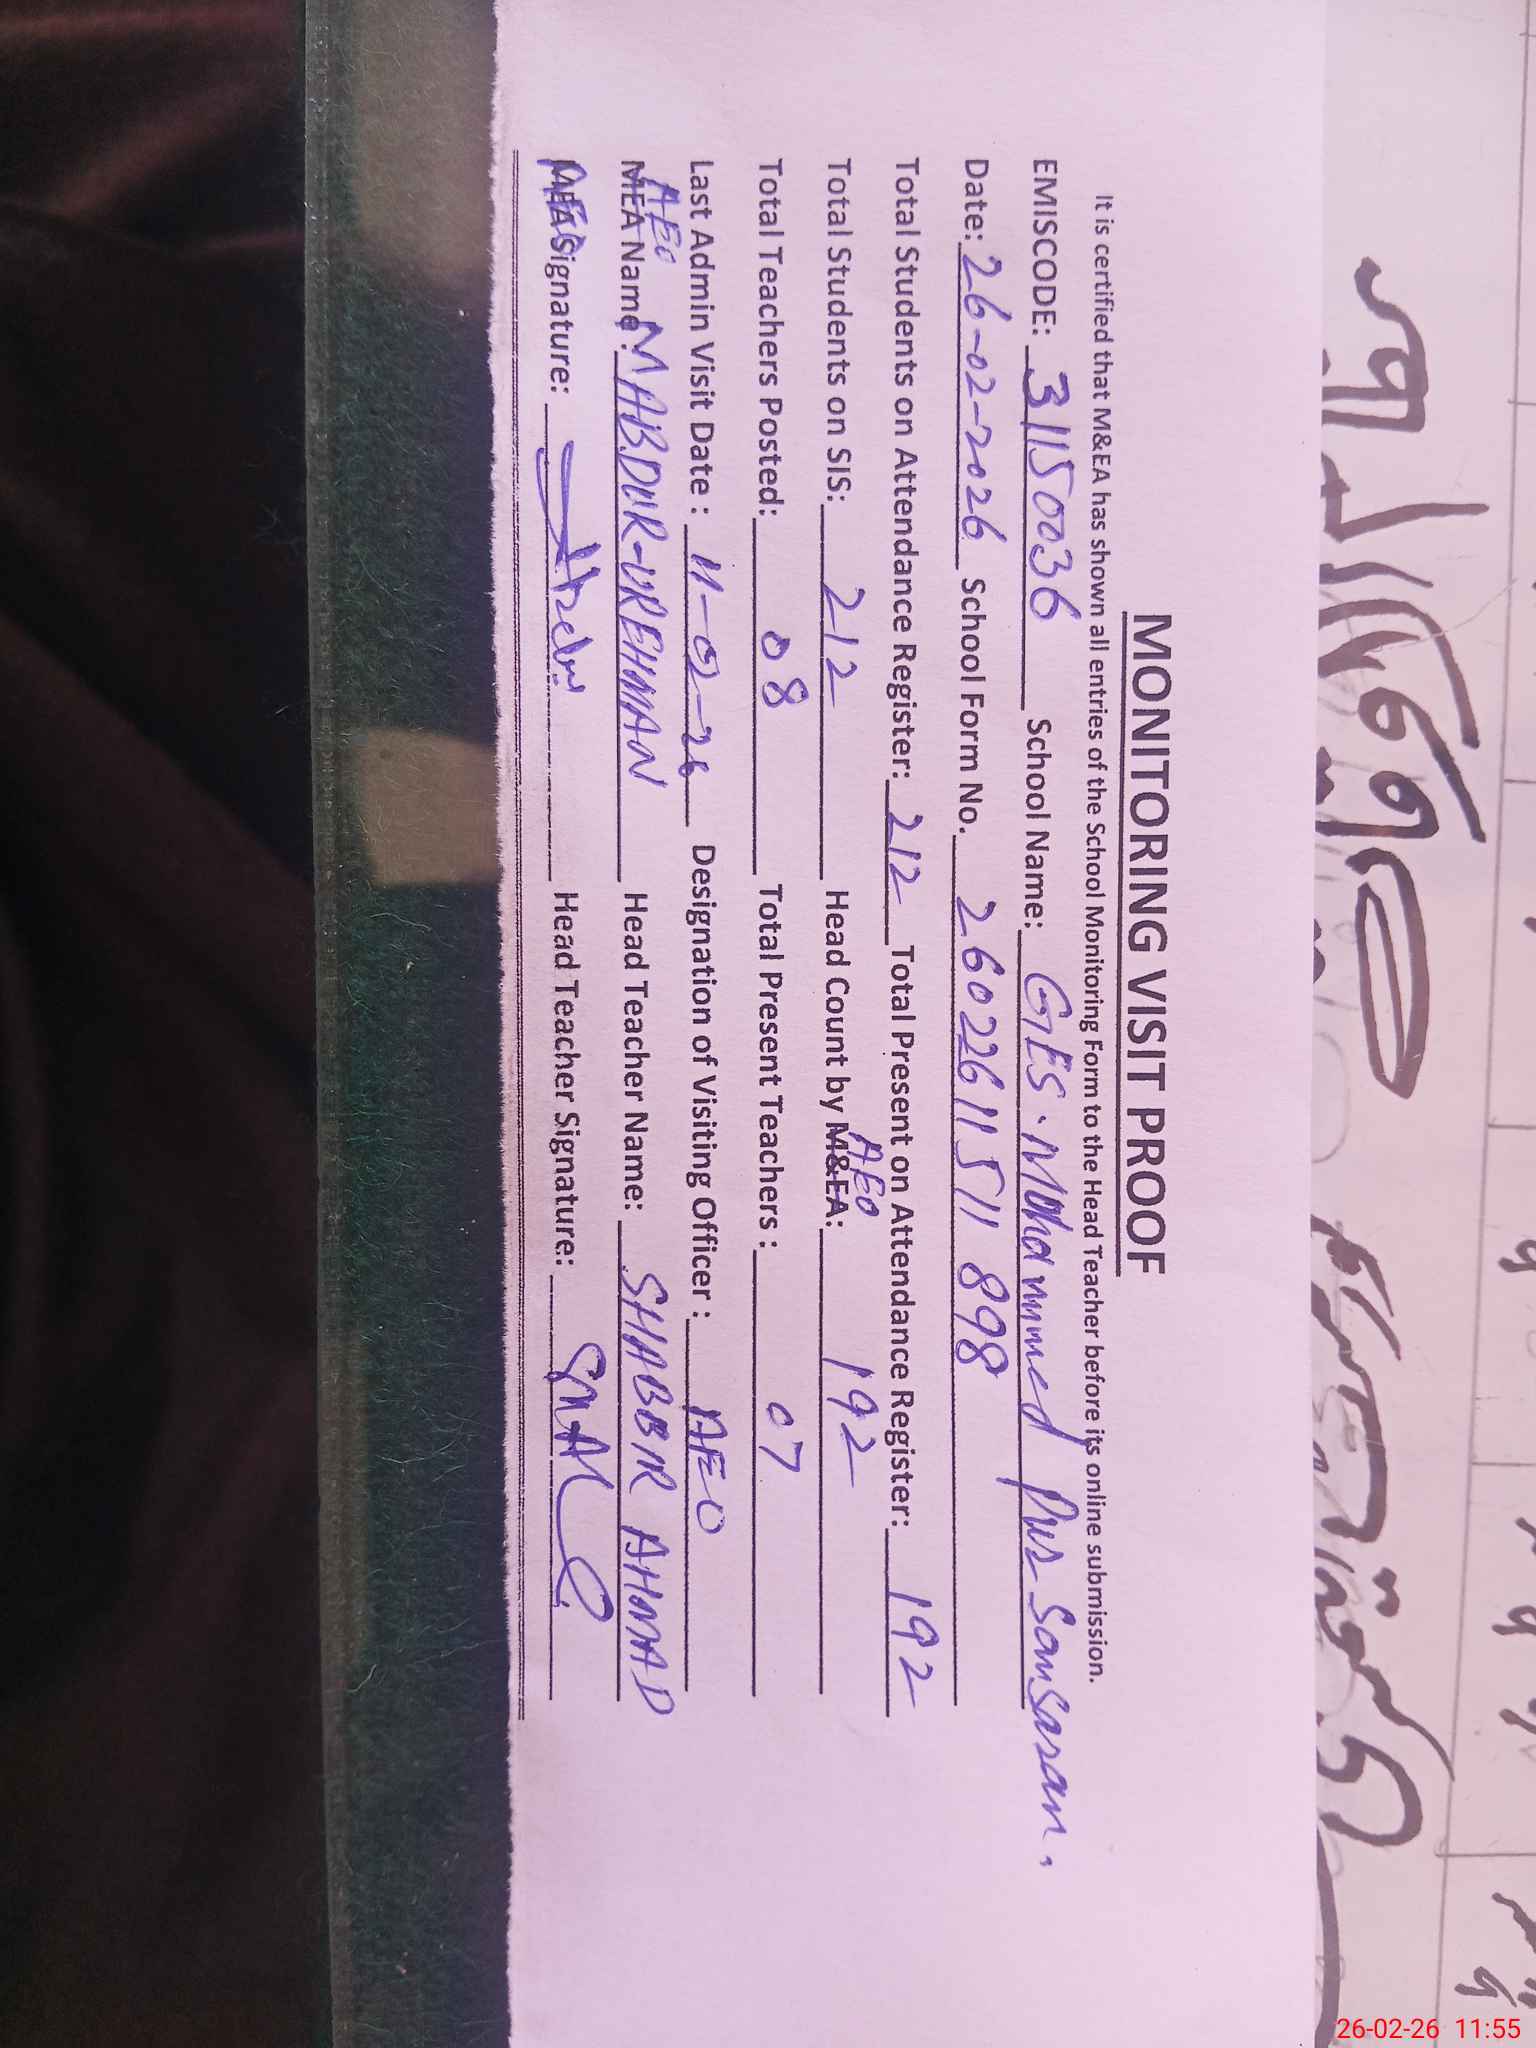 MONITORING VISIT PROOF
It is certified that M&EA has shown all entries of the School Monitoring Form to the Head Teacher before its online submission.
EMISCODE: 31150036 School Name: GES. Mohammed Pur Sansaran.
Date: 26-02-2026 School Form No. 26022611511898
Total Students on Attendance Register: 212 Total Present on Attendance Register: 192
Total Students on SIS: 212 Head Count by M&EA: AEO 192
Total Teachers Posted: 08 Total Present Teachers : 07
Last Admin Visit Date : 11-02-26 Designation of Visiting Officer : AEO
MEA Name : AEO M ABDUR-UREHMAN Head Teacher Name: SHABBIR AHMAD
MEA Signature: AEO Head Teacher Signature:
26-02-26 11:55